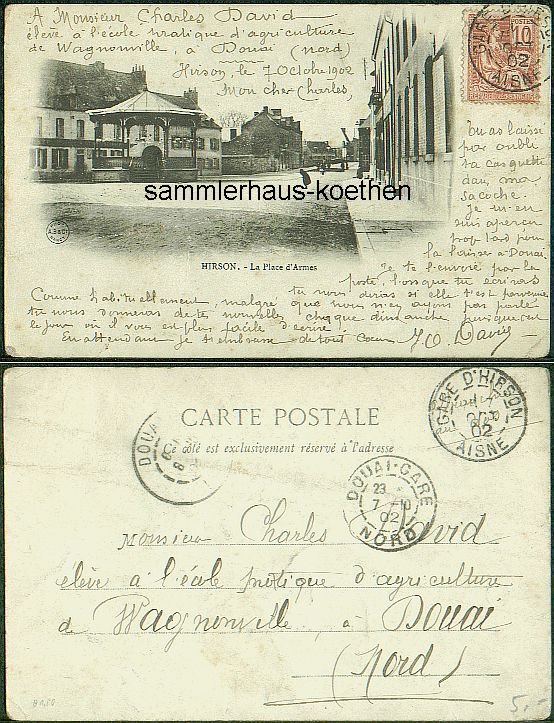 A Monsieur Charles David
élève à l'école pratique d'agriculture
de Wagnonville, à Douai (nord)
Hirson, le 7 Octobre 1902
Mon cher Charles,
GARE D'HIRSON
02
AISNE
POSTES
10
Tu as laissé
par oubli
ta casquette
dans ma
sacoche.
Je m'en
suis aperçu
trop tard pour
la laisser à Douai.
Je te l'envoie par la
poste, lorsque tu écriras
tu nous diras si elle t'est parvenue
sammlerhaus-koethen
HIRSON. - La Place d'Armes
Comme habituellement, malgré que nous n'en ayons pas parlé
tu nous donneras de tes nouvelles chaque dimanche puisque c'est
le jour où il vous est plus facile d'écrire.
En attendant je t'embrasse de tout coeur David
CARTE POSTALE
Ce côté est exclusivement réservé à l'adresse
GARE D'HIRSON
7
02
AISNE
DOUAI
DOUAI-GARE
23
7 -10
02
NORD
Monsieur Charles David
élève à l'école pratique d'agriculture
de Wagnonville, à Douai
(Nord)
5,-